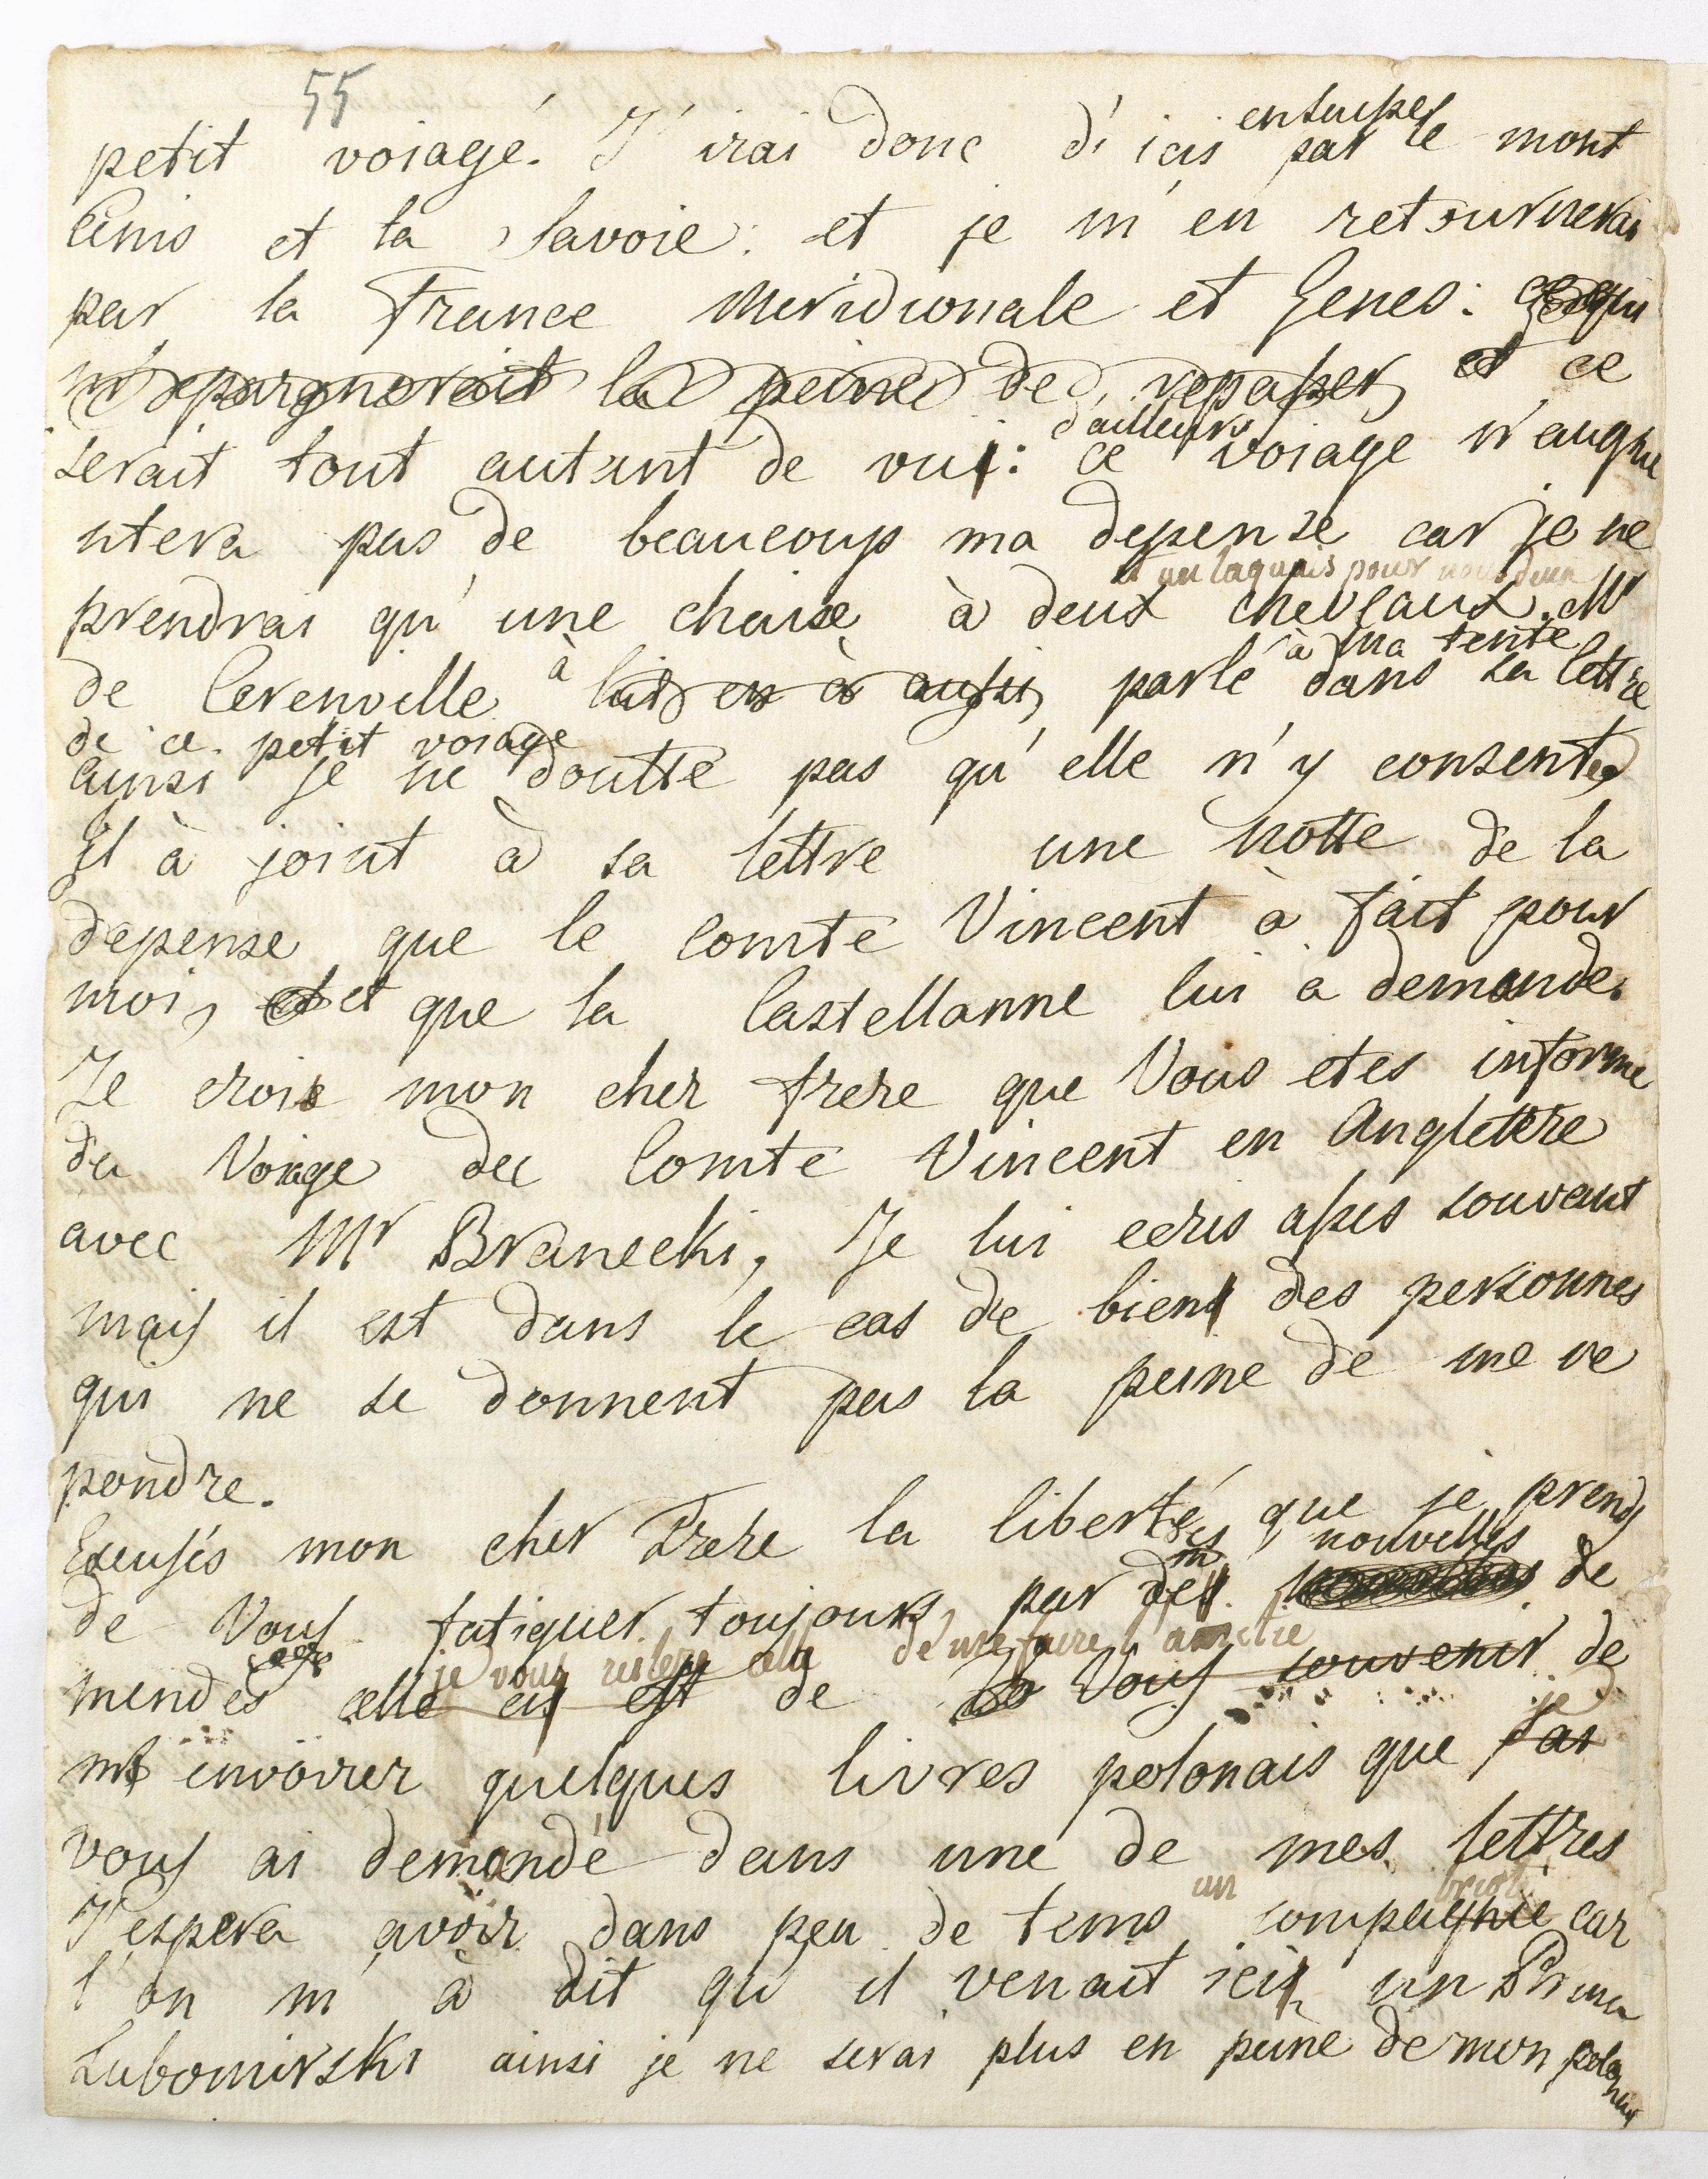 55
petit voiagé. J'irai donc d'icis ensuisse par le mont
Cenis et la Savoie: et je m'en retournerai
par la France Meridionale et Genes: ce qui
m'epargnerait la peine de repasser, et ce
serait tout autant de vu: d'ailleurs ce voiage n'augme
ntera pas de beaucoup ma depense car je ne
et un laquais pour nous deux
prendrai qu'une chaise à deux chevaux. Mr
de Cerenville à parlé à ma tente dans sa lettre
de ce petit voiage
ainsi je ne doutte pas qu'elle n'y consente
Il à joint à sa lettre une notte de la
depense que le comte Vincent à fait pour
moi, et que la Castellanne lui a demandé.
Je crois mon cher frere que Vous etes informe
du Voiage du Comte Vincent en Angletere
avec Mr Branecki, Je lui ecris assés souvent
mais il est dans le cas de bien des personnes
qui ne se donnent pas la peine de me re
pondre.
Excusés mon cher Frere la liberté que je prends
de Vous fatiguer toujours par des nouvelles de
je vous de me faire l'amitie
mendes celle ci est de Vous souvenir de
m' envoirer quelques livres polonais que je
vous ai demandé dans une de mes lettres
J'espera avoir dans peu de tems un compagnie car
l'on m'à dit qu'il venait ici un Prince
Lubomirski ainsi je ne serai plus en peine de mon polonais